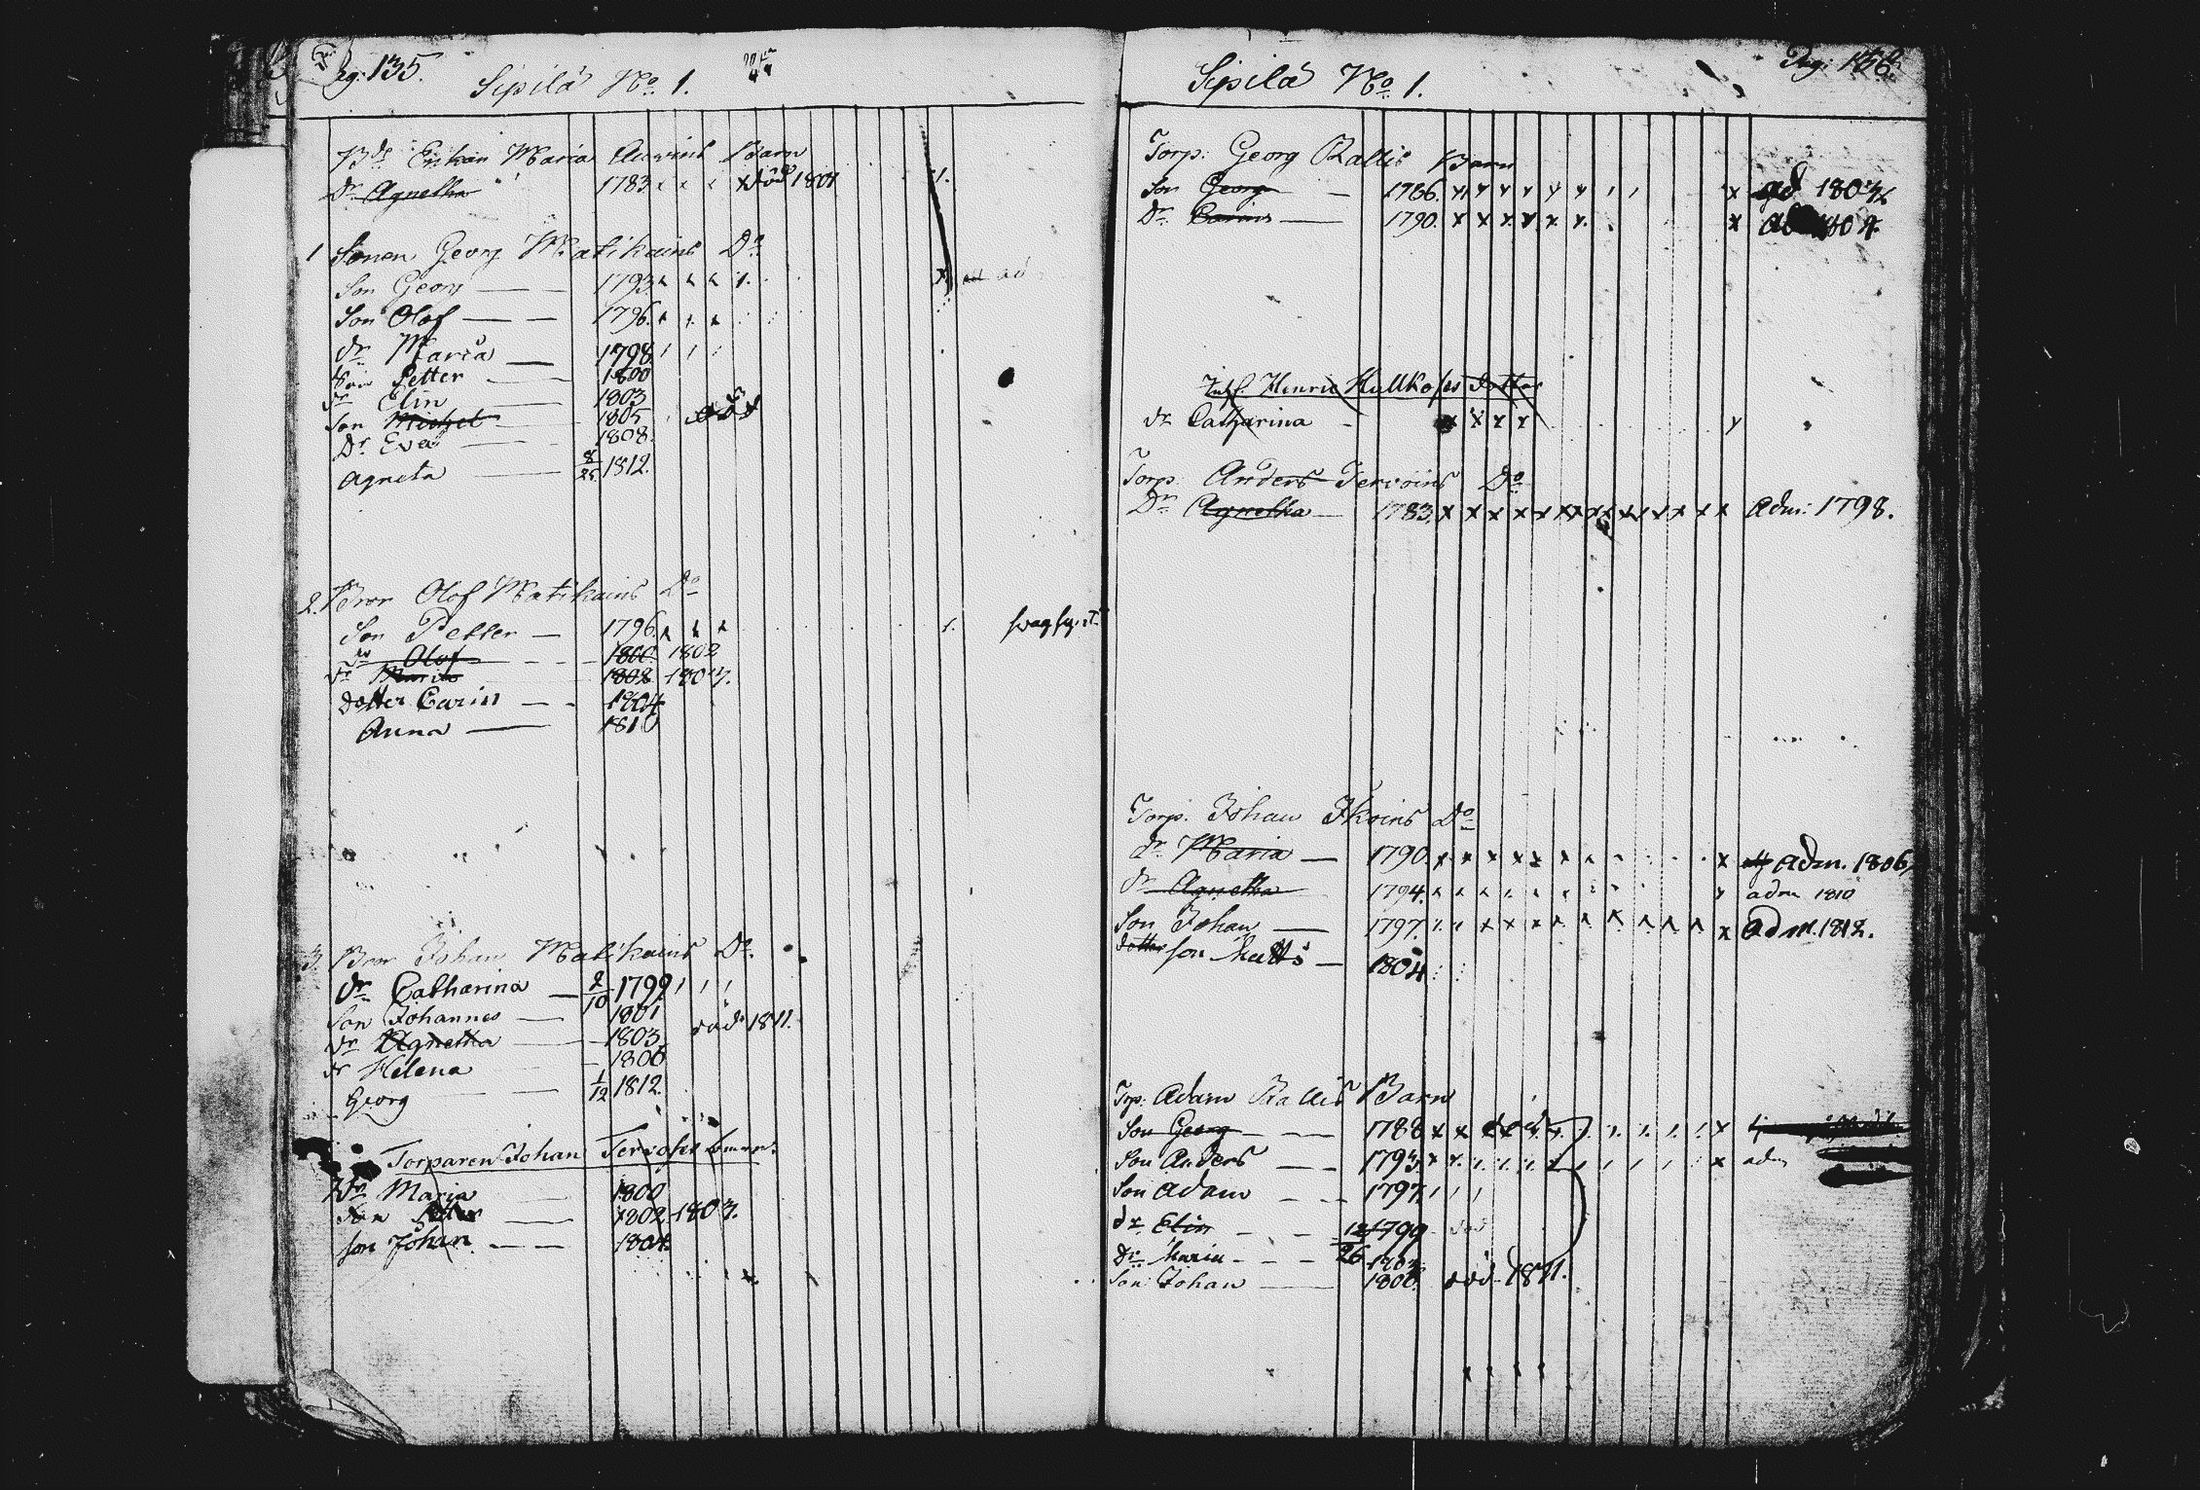 Pag: 135.
Sipilä No 1.
Bds Enkan Maria Auvins Barn
Dr Agnetha 1783 x död 1801
1 Sonen Georg Matikains Do
Son Georg 1793 x ad
Son Olof 1796.
dr Maria 1798
Son Petter 1800
dr Elin 1803
Son Michel 1805 död
Dr Eva 1808.
Agneta 8/25 1812.
2. Bror Olof Matikains Do
Son Petter 1796. x x x
Olof 1800 1802
dr Maria 1802 1803.
dotter Carin 1804
Anna 1810
3. Bror Johan Matikains Do
Dr Catharina 2/10 1799
Son Johannes 1801
dr Agnetha 1803 död 1811.
dr Helena 1806
Georg 1/12 1812.
Torparen Johan
Dr Maria 1800
Son Petter 1802 1803.
Son Johan 1804
Pag: 136.
Sipilä No 1.
Torp: Georg Rallis Barn
Son Georg 1786. x x x x x x x
Dr Carin 1790. x x x x x x x
Inh. Henric dotter
dr Catharina x x x x
Torp: Anders Tervoins Do
Dr Agnetha 1783. x x x x x x x x x x x x Adm: 1798.
Torp. Johan Ikoins Do
dr Maria 1790. x x x x x x x adm. 1806,
dr Agnetha 1794. adm 1810
Son Johan 1797. x x x x adm. 1812.
dotter son Matts 1804
Torp: Adam Rallis Barn
Son Georg 1788 x x död x
Son Anders 1793. x x adm
Son Adam 1797.
dr Elin 12/26 1799 död
Dr Maria 1803
Son Johan 1806. död 1811.